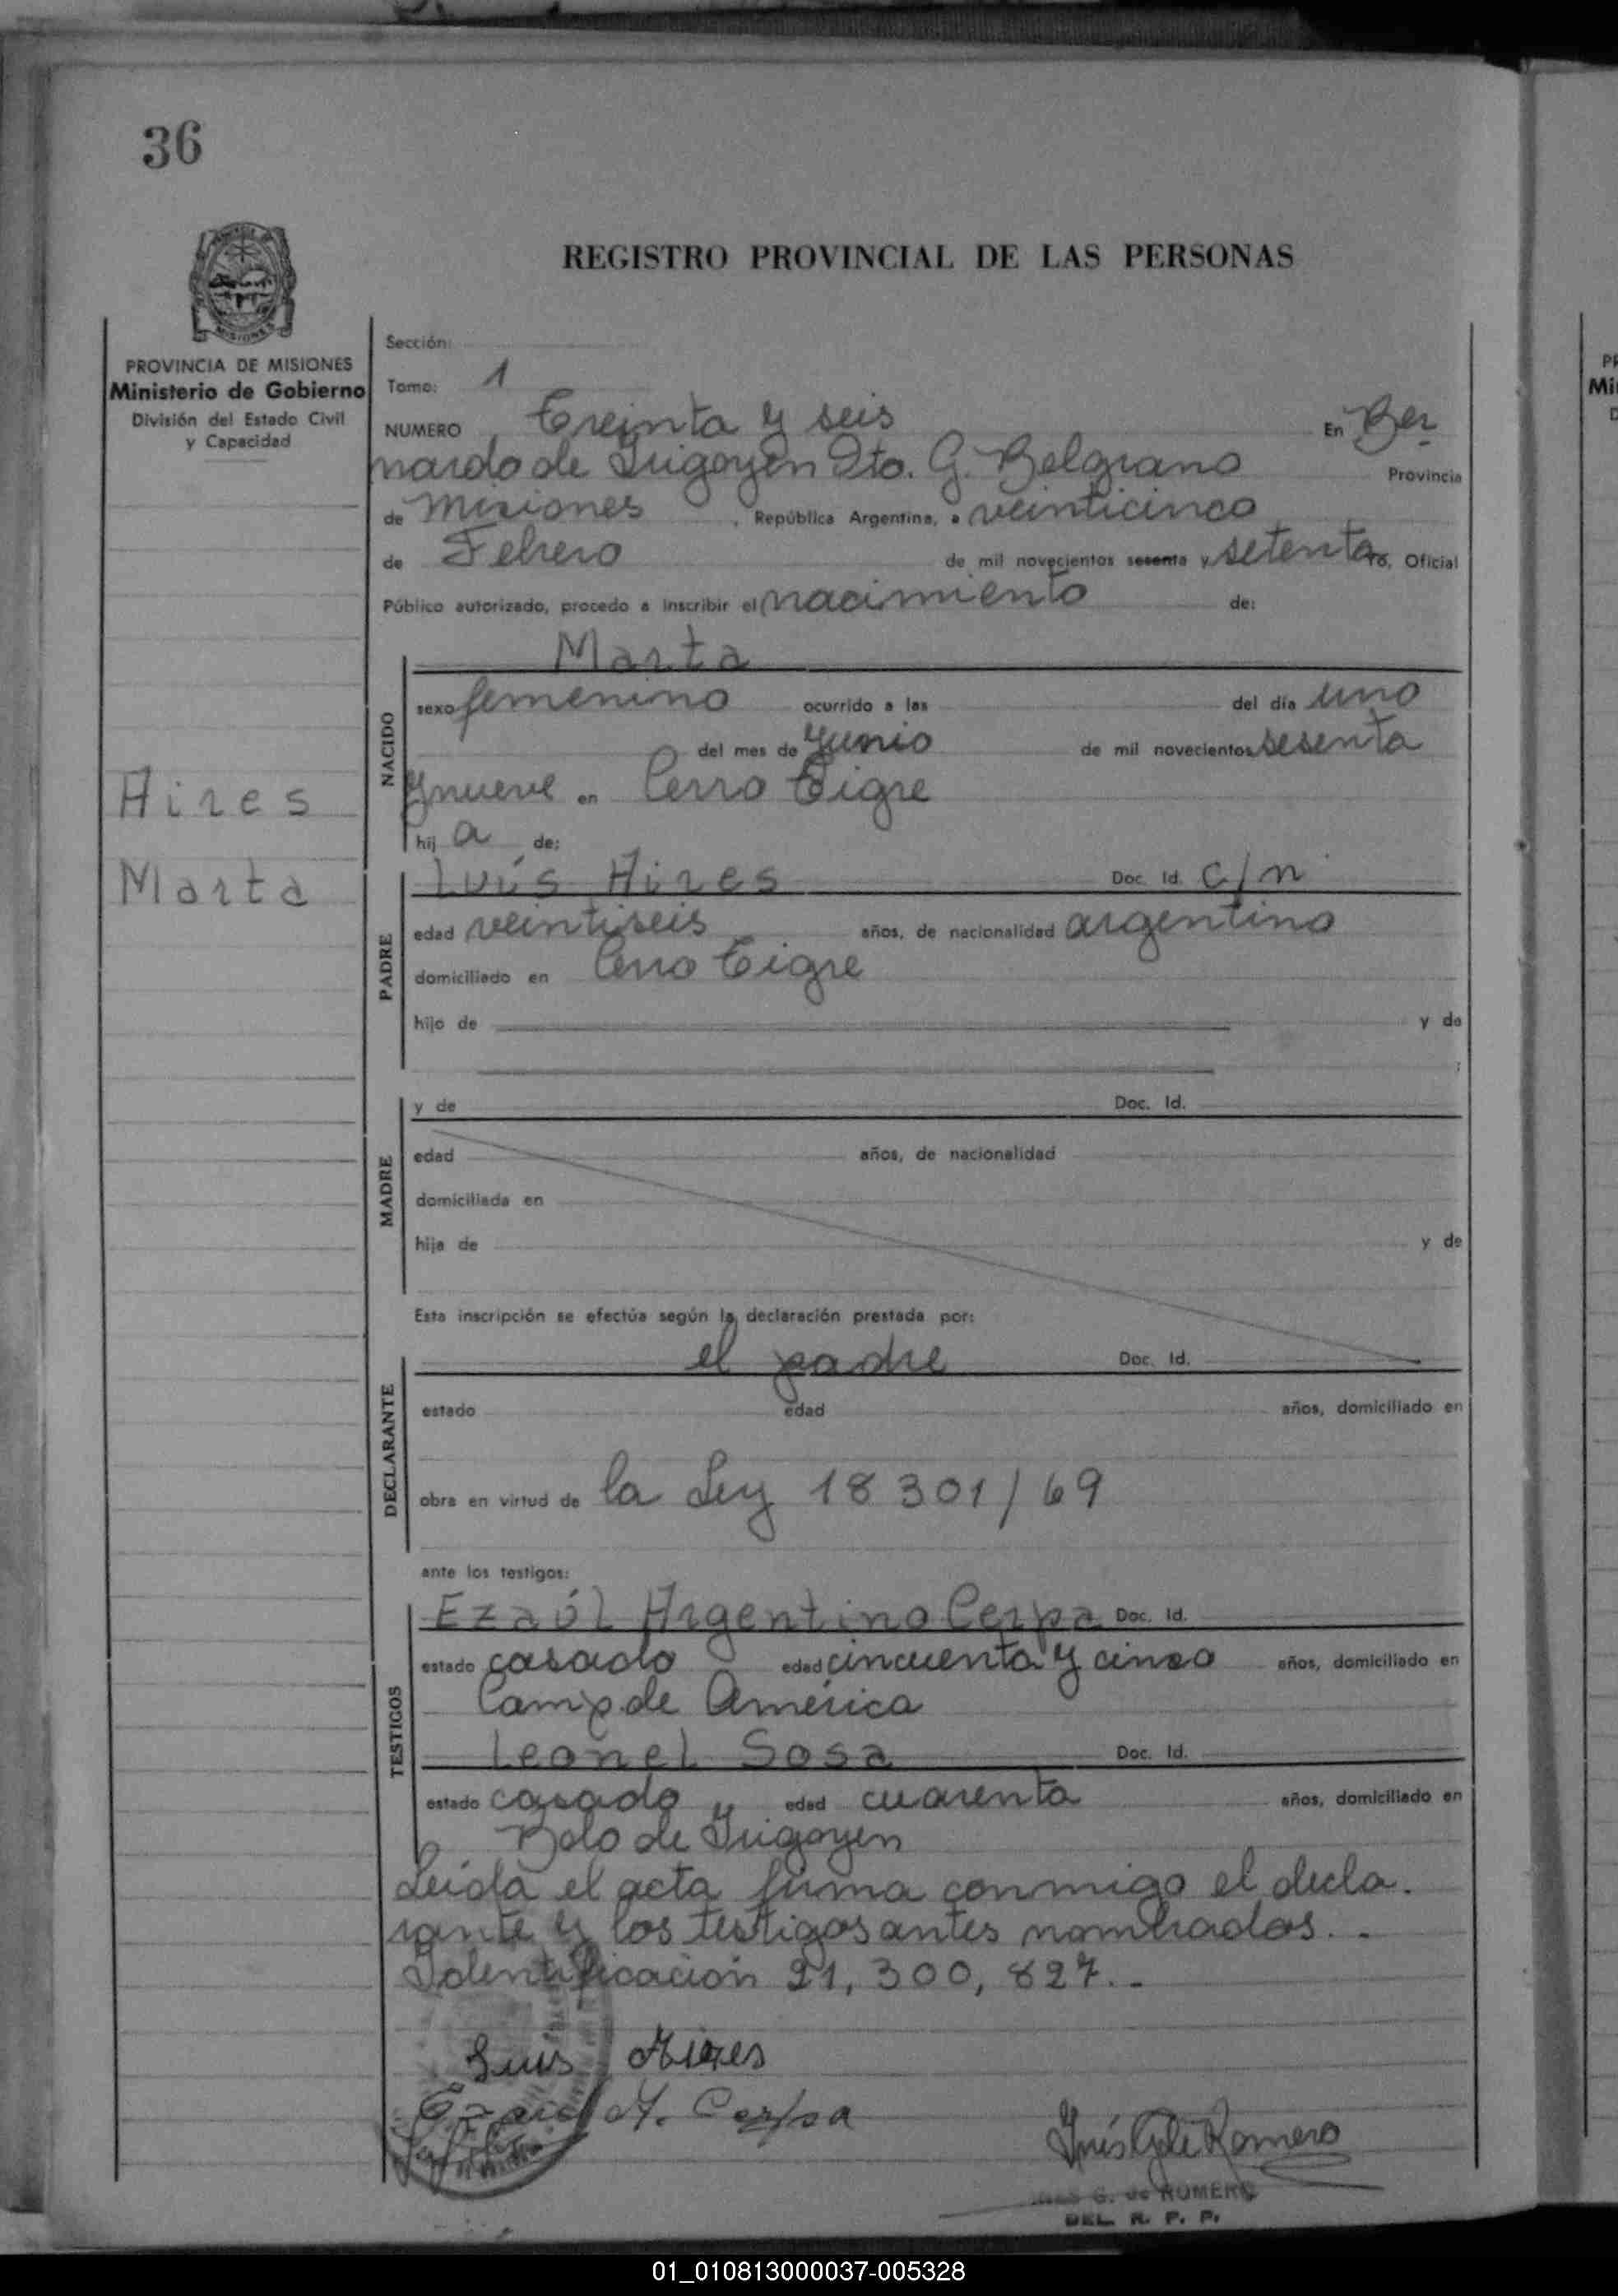 36
REGISTRO PROVINCIAL DE LAS PERSONAS
MISIONES
PROVINCIA DE MISIONES
Ministerio de Gobierno
División del Estado Civil
y Capacidad
Aires
Marta
Sección:
Tomo: 1
NUMERO Treinta y seis En Ber
nardo de Irigoyen Dto. G. Belgrano Provincia
de Misiones, República Argentina, a veinticinco
de Febrero de mil novecientos sesenta y setenta yo, Oficial
Público autorizado, procedo a inscribir el nacimiento de:
Marta
NACIDO
sexo femenino ocurrido a las del día uno
del mes de Junio de mil novecientos sesenta
y nueve en Cerro Tigre
hij a de:
Luís Aires Doc. Id. c/n
PADRE
edad veintiseis años, de nacionalidad argentino
domiciliado en Cerro Tigre
hijo de y de
;
y de Doc. Id.
MADRE
edad años, de nacionalidad
domiciliada en
hija de y de
Esta inscripción se efectúa según la declaración prestada por:
el padre Doc. Id.
DECLARANTE
estado edad años, domiciliado en
obra en virtud de la Ley 18301/69
ante los testigos:
Ezaúl Argentino Cerpa Doc. Id.
TESTIGOS
estado casado edad cincuenta y cinco años, domiciliado en
Camp. de América
Leonel Sosa Doc. Id.
estado casado edad cuarenta años, domiciliado en
Bdo de Irigoyen
Leída el acta firma conmigo el decla.
rante y los testigos antes nombrados..
Identificación 21,300,827..
Luis Aires
Ezaul A. Cerpa
Inés G de Romero
INES G. de ROMERO
DEL. R. P. P.
01_010813000037-005328